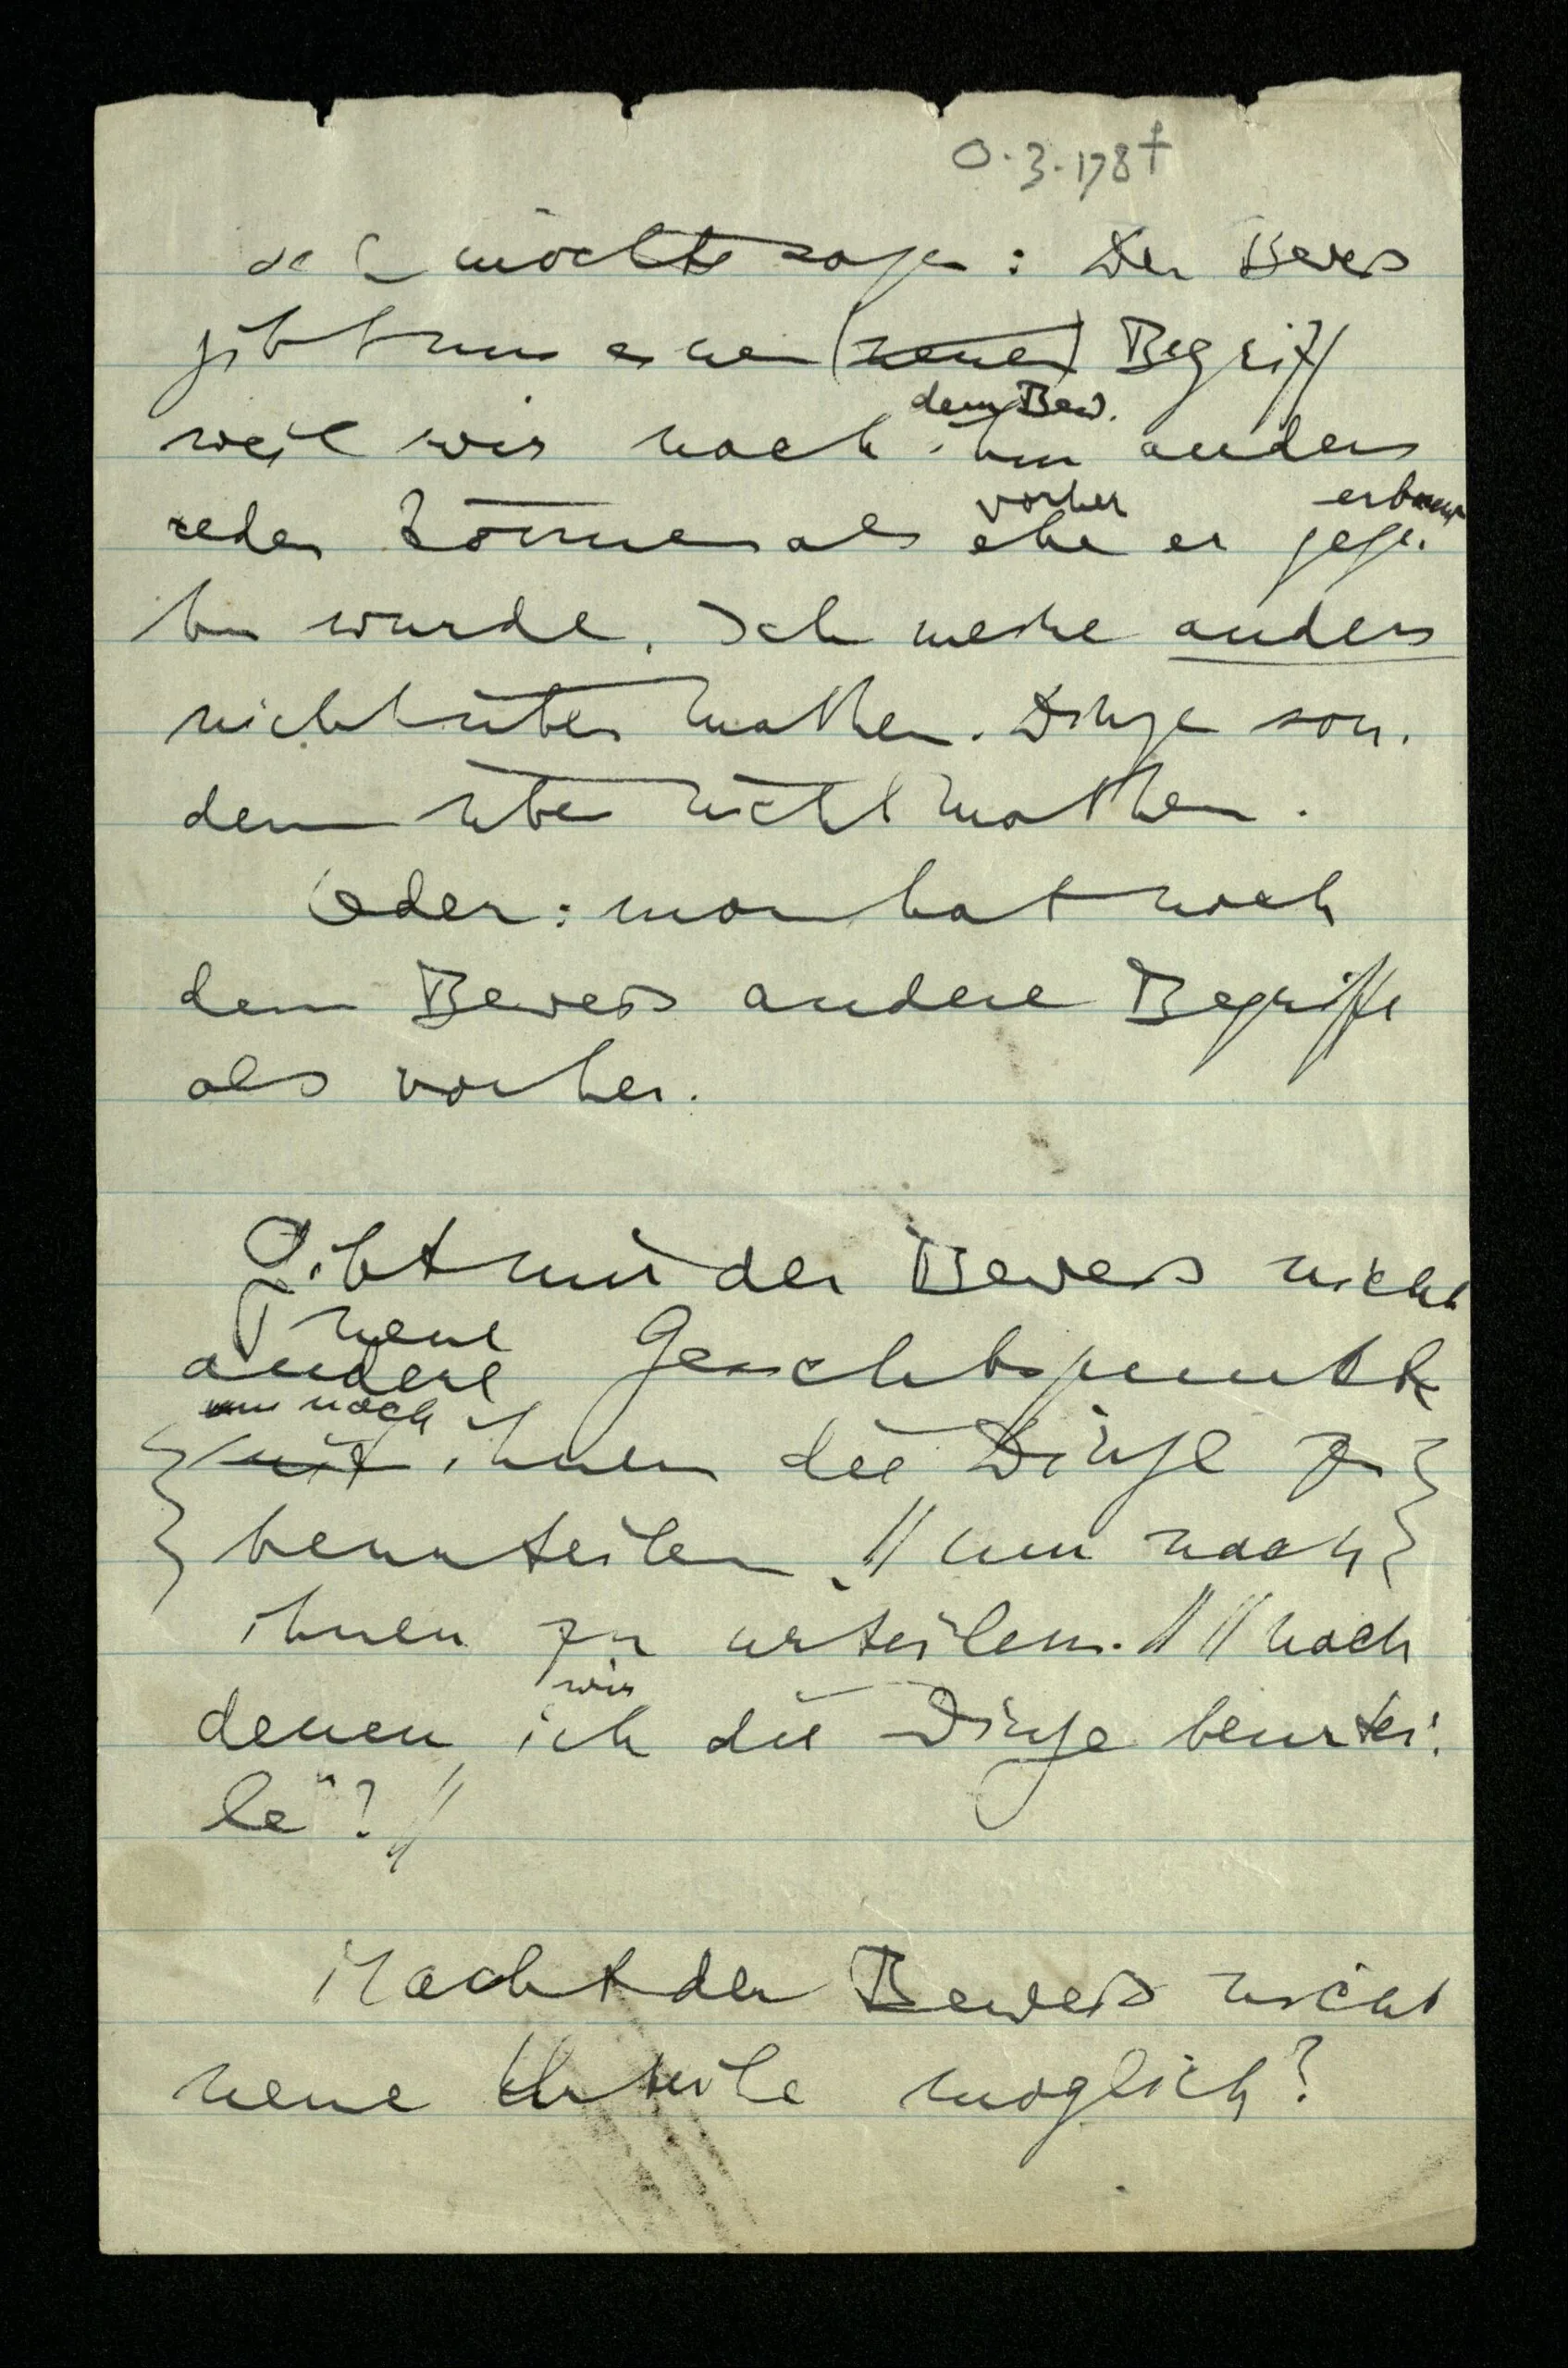 O.3.178†
ich möchte sagen: Der Beweis
gibt uns einen (neuen) Begriff
dem Bew.
weil wir nach ihm anders
vorher
reden können als ehe er gege-
ben wurde. Ich meine anders
nicht über mathem. Dinge son-
dern über nicht mathem.
Oder: man hat nach
dem Beweis andere Begriffe
als vorher.
Gibt mir der Beweis nicht
neue
andere Gesichtspunkte
um nach
mit ihnen die Dinge zu
beurteilen. // um nach
ihnen zu urteilen. // // nach
wir
denen ich die Dinge beurtei-
le"? //
Macht der Beweis nicht
neue Urteile möglich?